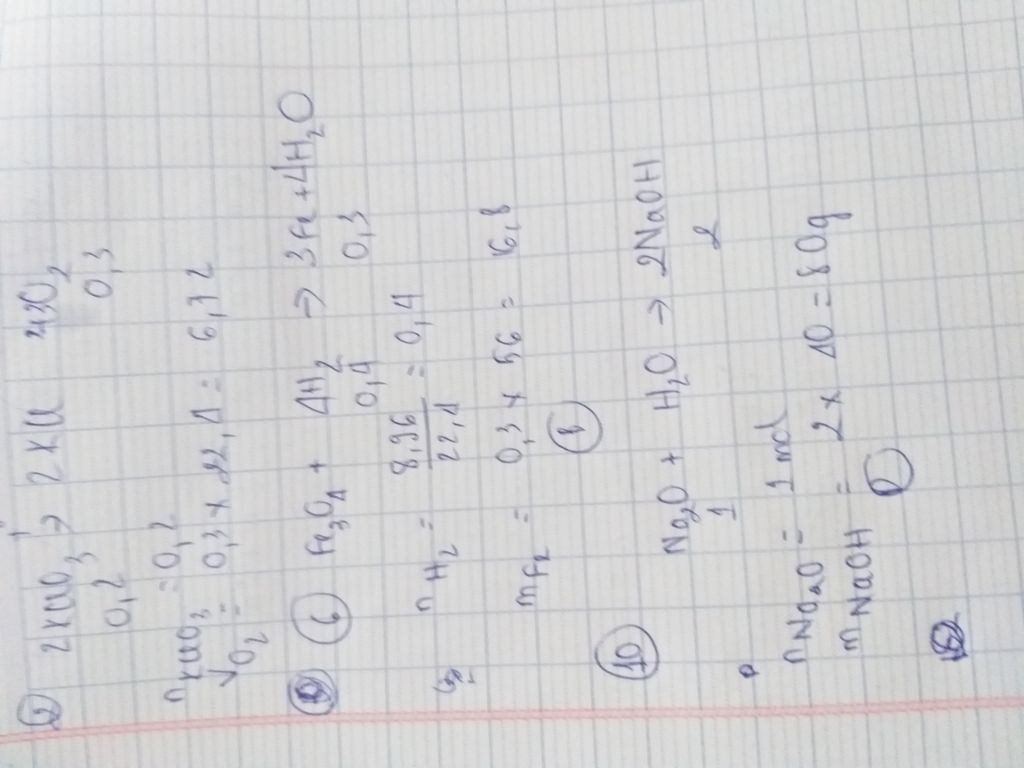 2KClO3 → 2KCl 3O2
0,2 0,3
nKClO3 = 0,2
VO2 = 0,3 x 22,4 = 6,72
6 Fe3O4 + 4H2 → 3Fe + 4H2O
0,4 0,3
nH2 = 8,96/22,4 = 0,4
mFe = 0,3 x 56 = 16,8
10 Na2O + H2O → 2NaOH
1 2
nNa2O = 1 mol
mNaOH = 2 x 40 = 80g